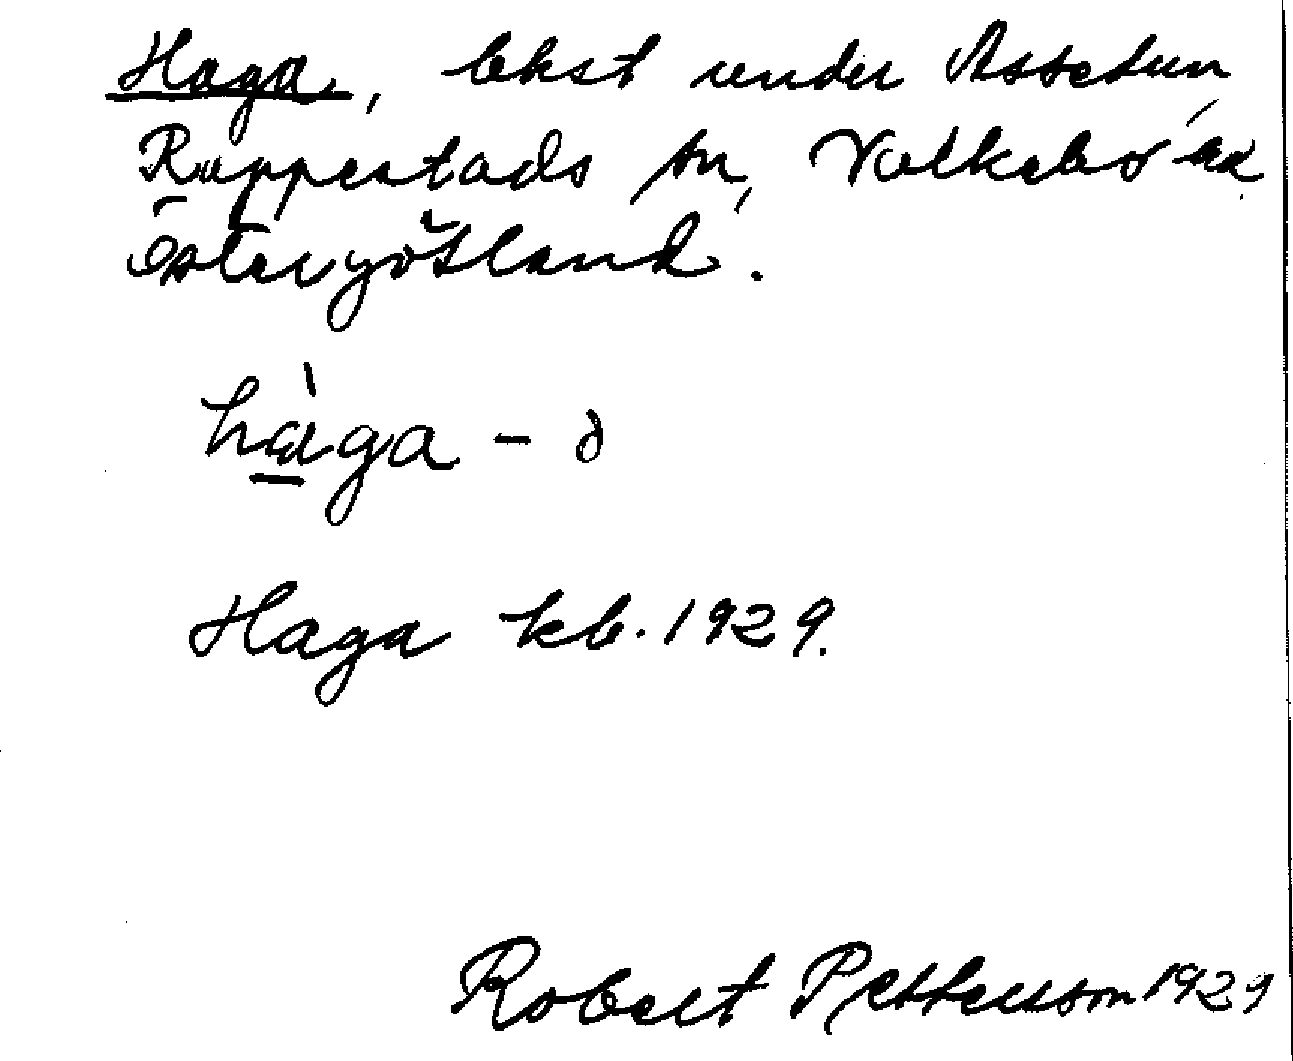 Haga, lehst under Assetun,
Rappestads sn, Valkebo hd
Östergötland.
hàga - ð
Haga kb. 1929.
Robert Pettersson 1929